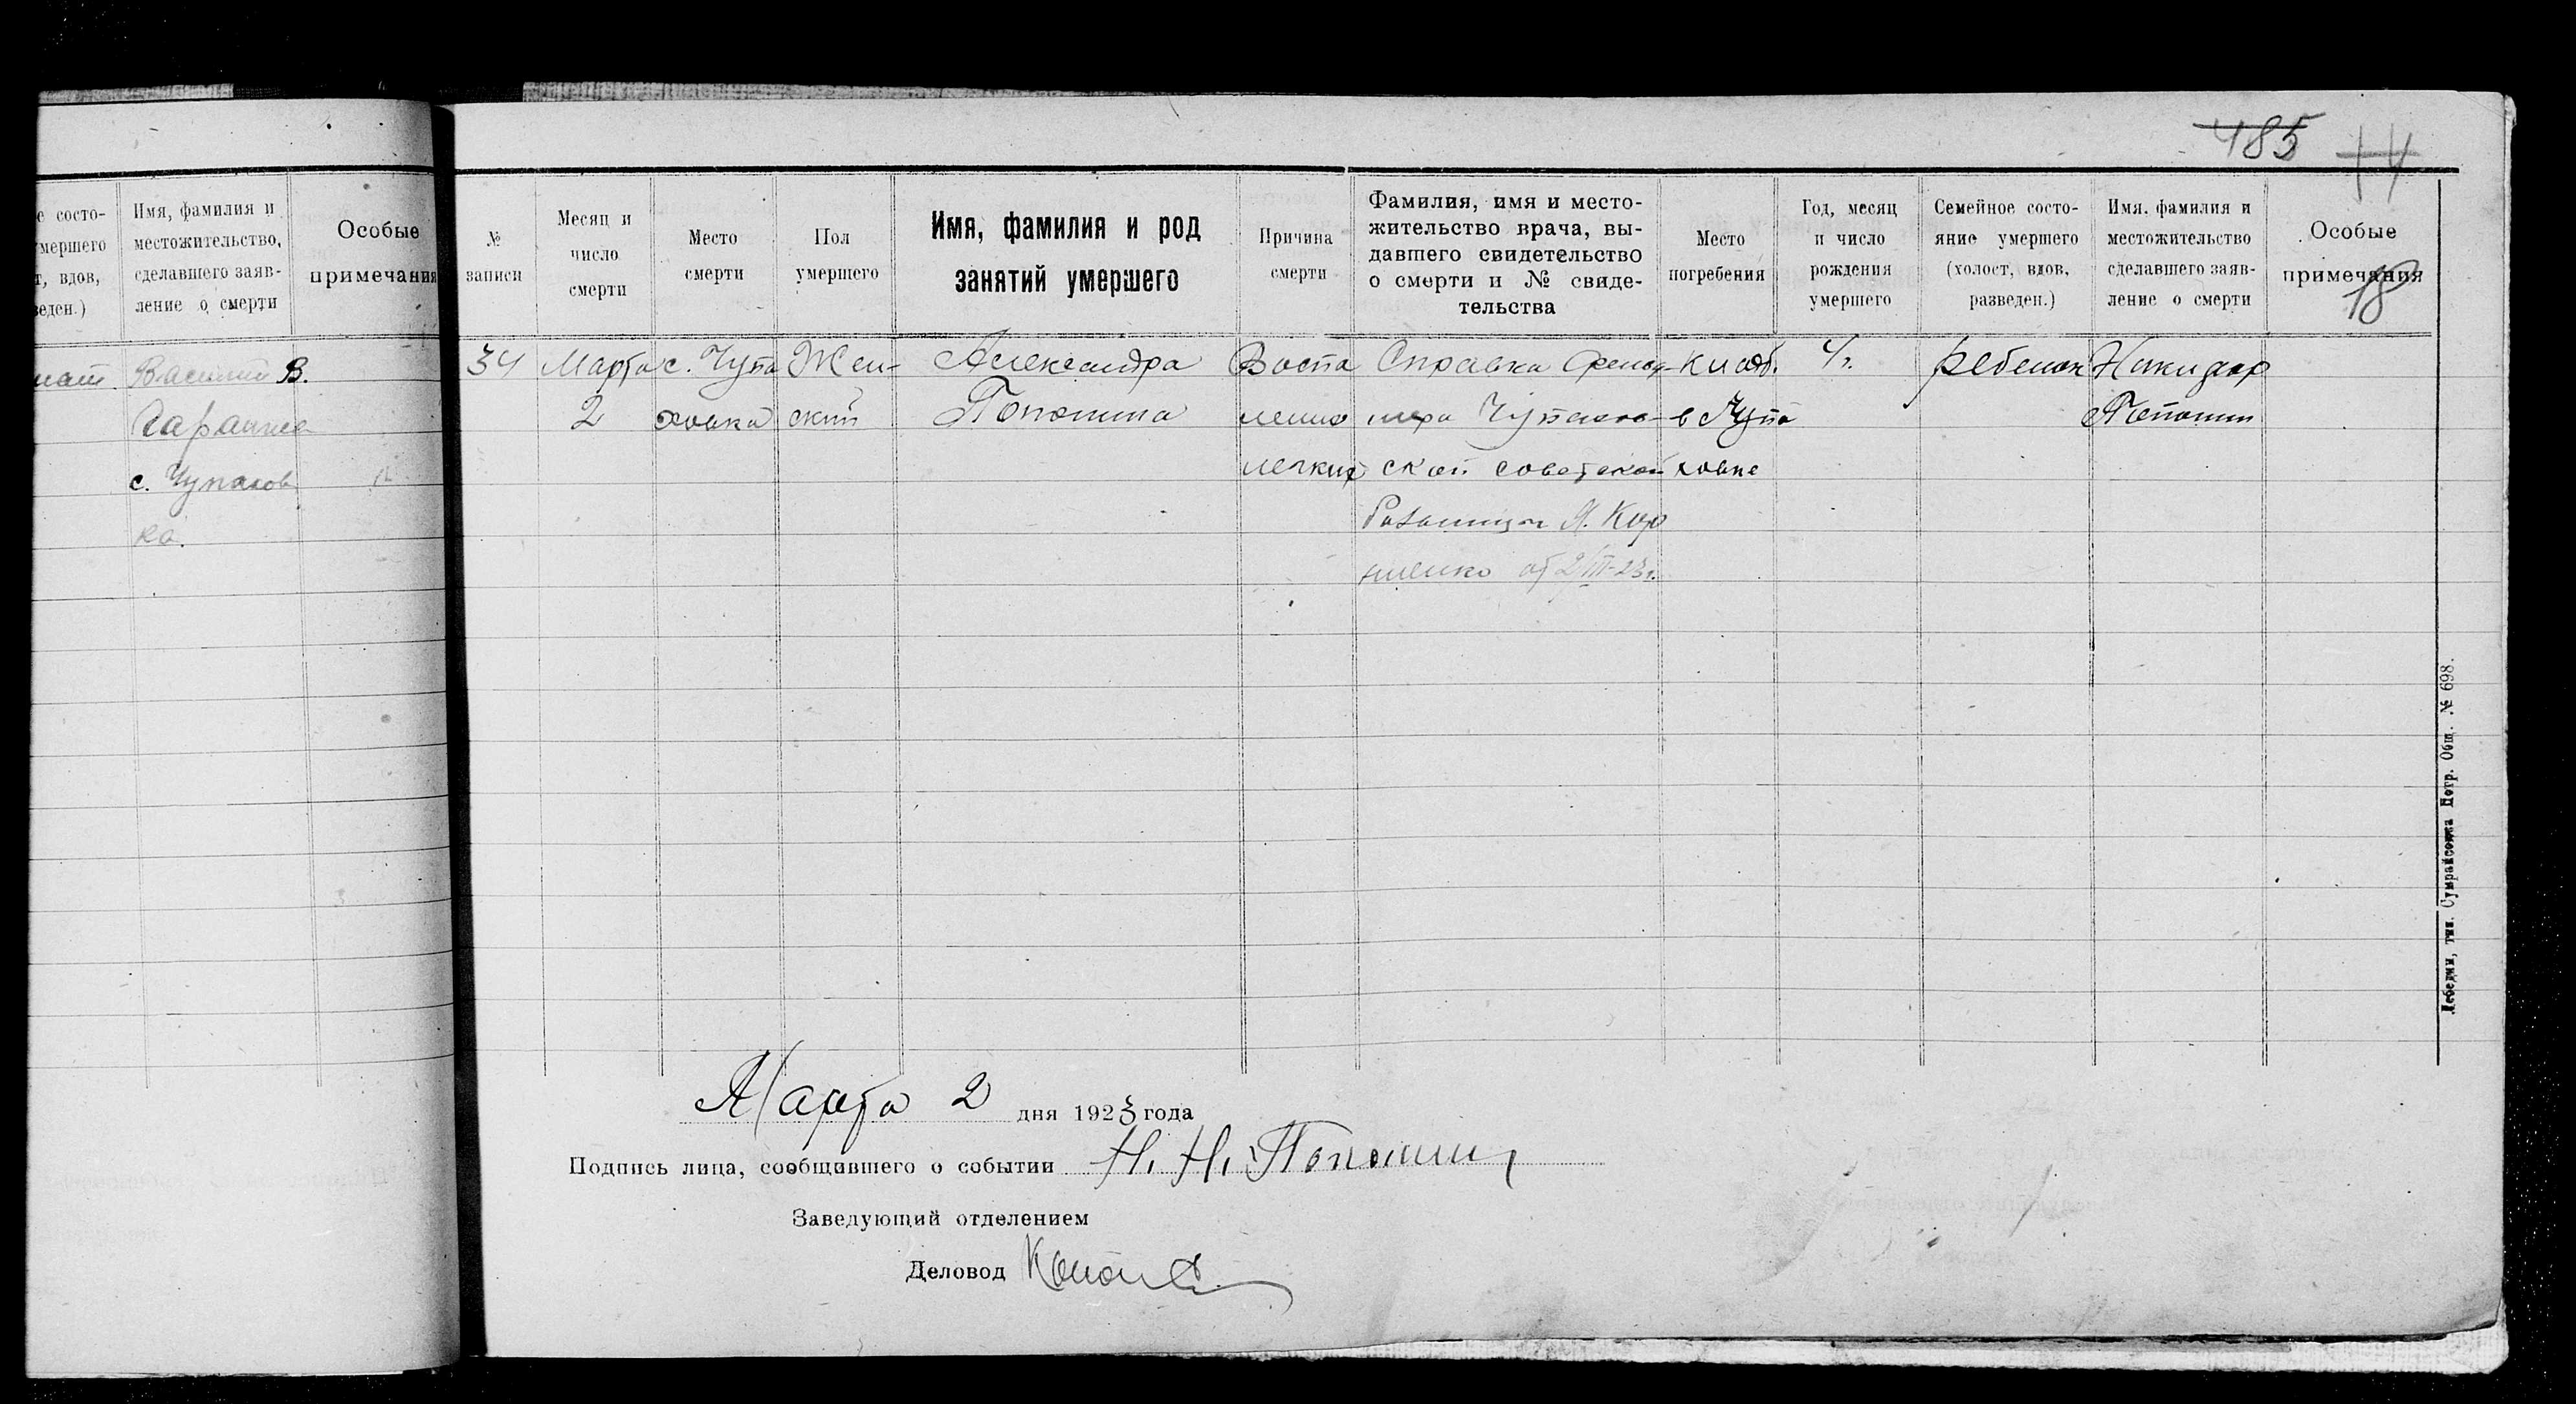 485 14
е состо-
умершего
т, вдов,
веден.)
Имя, фамилия и
местожительство,
сделавшего заяв-
ление о смерти
Особые
примечания
нат.
Василий В.
с. Чупахов
ка.
№
записи
Месяц и
число
смерти
Место
смерти
Пол
умершего
Имя, фамилия и род
занятий умершего
Причина
смерти
Фамилия, имя и место-
жительство врача, вы-
давшего свидетельство
о смерти и № свиде-
тельства
Место
погребения
Год, месяц
и число
рождения
умершего
Семейное состо-
яние умершего
(холост, вдов,
разведен.)
Имя. фамилия и
местожительство
сделавшего заяв-
ление о смерти
Особые
примечания
18
34
Марта
2
с. Чупа
ховка
Жен-
ский
Александра
Попошина
Воспа
ление
легких
Справка фельд-
шера Чупахов-
ской советской
от 2/III-23г.
кладб.
в Чупа
ховке
4г.
ребенок
Никифор
Попошин
Марта 2 дня 1923 года
Подпись лица, сообщившего о событии Н. Н. Попошин
Заведующий отделением
Деловод
Лебедин, тип. Сумрайсоюза Потр. Общ. № 698.